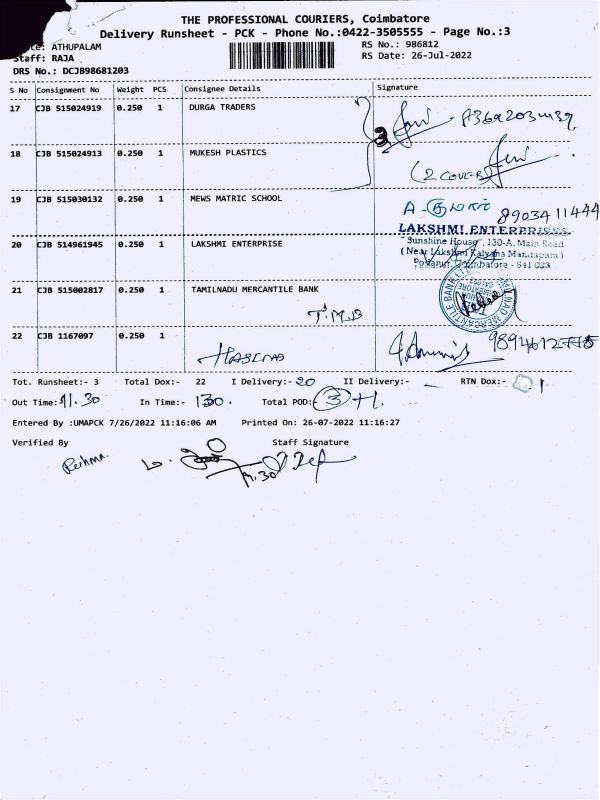 THE PROFESSIONAL COURIERS, Coimbatore
Delivery Runsheet - PCK - Phone No.:0422-3505555 - Page No.:3
ATHUPALAM
RS No.: 986812
Staff: RAJA
RS Date: 26-Jul-2022
DRS No.: DCJB98681203
S No Consignment No Weight PCS Consignee Details Signature
17 CJB 515024919 0.250 1 DURGA TRADERS
18 CJB 515024913 0.250 1 MUKESH PLASTICS
(2 COVER)
19 CJB 515030132 0.250 1 MEWS MATRIC SCHOOL
8903411444
LAKSHMI ENTERPRISES
20 CJB 514961945 0.250 1 LAKSHMI ENTERPRISE
"Sunshine House", 130-A, Main Road
(Near Lakshmi Kalyana Mandapam)
Coimbatore - 641 023
21 CJB 515002817 0.250 1 TAMILNADU MERCANTILE BANK
T.M.B
22 CJB 1167097 0.250 1
HASINA
Tot. Runsheet:- 3 Total Dox:- 22 I Delivery:- 20 II Delivery:- - RTN Dox:- 1
Out Time: 11.30 In Time:- 130. Total POD: 3+1
Entered By :UMAPCK 7/26/2022 11:16:06 AM Printed On: 26-07-2022 11:16:27
Verified By Staff Signature
Reshma